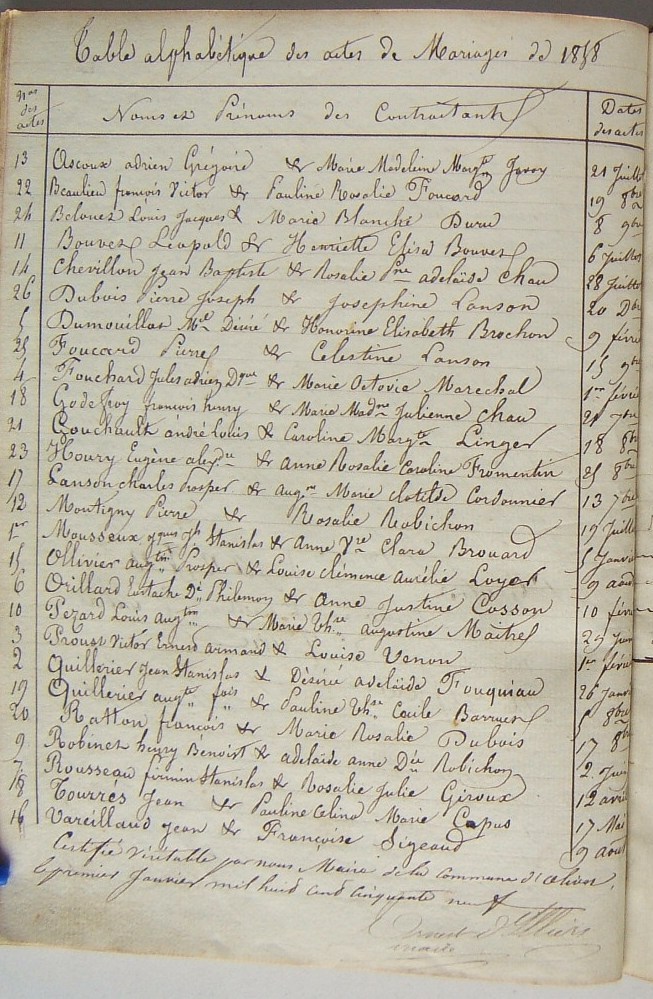 Table alphabétique des actes de Mariages de 1858
Nos des actes
Noms et Prénoms des Contractants
Dates des actes
13 Ascoux adrien Grégoire & Marie Madeleine Margte Javoy 21 Juillet
22 Beaulieu françois Victor & Pauline Rosalie Foucard 19 8bre
24 Belouet Louis Jacques & Marie Blanche Duru 8 9bre
11 Bouvet Léopold & Henriette Elisa Bouvet 6 Juillet
14 Chevillon Jean Baptiste & Rosalie adelaïde Chau 28 Juillet
26 Dubois Pierre Joseph & Josephine Lanson 20 Dbre
5 Dumouillat Mel Désiré & Honorine Elisabeth Brochon 9 févri
25 Foucard Pierre & Celestine Lanson 15 9bre
4 Fouchard Jules adrien Dque & Marie Octavie Marechal 1er févri
18 Godefroy françois henry & Marie Madne Julienne Chau 21 7bre
21 Gouchault andré Louis & Caroline Margte Linger 18 8bre
23 Houry Eugène alexdre & anne Rosalie Caroline Fromentin 25 8bre
17 Lanson charles Prosper & Augne Marie Clotilde Cordonnier 13 7bre
12 Montigny Pierre & Rosalie Robichon 19 Juille
1er Mousseux Jh Stanislas & Anne Vre Clara Brouard 5 Janvie
15 Ollivier augtin Prosper & Louise clémence Aurélie Loyer 9 août
6 Orillard Eustache Dé Philemon & Anne Justine Cosson 10 févri
10 Pezard Louis Augtin & Marie Thse augustine Maitre 29 Juin
3 Proust Victor Ernest armand & Louise Venon 1er févri
2 Quillerier Jean Stanislas & Désirée adelaïde Fouquiau 26 Janvi
19 Quillerier augte fois & Pauline Thse Cécile Barruet 5 8bre
20 Ratton françois & Marie Rosalie Dubois 17 8b
9 Robinet henry Benoist & adelaide anne Dée Robichon 2 Juin
7 Rousseau firmin Stanislas & Rosalie Julie Giroux 12 avri
8 Tourrés Jean & Pauline Celina Marie Capus 17 Mai
16 Vareillaud Jean & Françoise Sigeaud 9 aout
Certifié véritable par nous Maire de la Commune d'
Le premier Janvier mil huit cent cinquante neuf
Ernest
maire